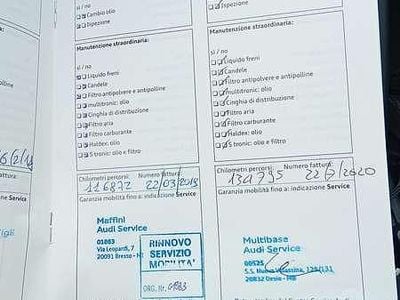 Cambio olio
Ispezione
Manutenzione straordinaria:
sì / no
Liquido freni
Candele
Filtro antipolvere e antipolline
multitronic: olio
Cinghia di distribuzione
Filtro aria
Filtro carburante
Haldex: olio
S tronic: olio e filtro
Chilometri percorsi: Numero fattura:
116872 22/03/2019
Garanzia mobilità fino a: indicazione Service
Maffini
Audi Service
01883
Via Leopardi, 7
20091 Bresso - MI
RINNOVO
SERVIZIO
MOBILITA'
ORG. Nr. 01883
sì / no
Ispezione
Manutenzione straordinaria:
sì / no
Liquido freni
Candele
Filtro antipolvere e antipolline
multitronic: olio
Cinghia di distribuzione
Filtro aria
Filtro carburante
Haldex: olio
S tronic: olio e filtro
Chilometri percorsi: Numero fattura:
134795 22/7/2020
Garanzia mobilità fino a: indicazione Service
Multibase
Audi Service
00525
20832 Desio - MB